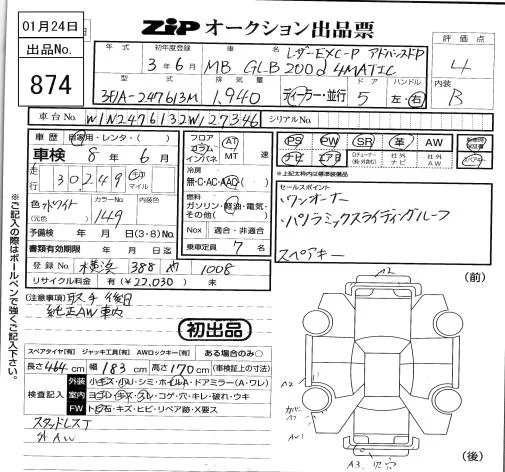 01月24日
ZIP オークション出品票
出品No.
874
評価点
4
内装
B
年式 初年度登録 車名
3年6月 MB GLB200d 4MATIC
レザーEXC-P アドバンスドP
型式 排気量 ドア ハンドル
3DA-247613M 1,940 ディーラー・並行 5 左・右
車台No. W1N2476132W127346 シリアルNo.
車歴 自家用・レンタ・( )
車検 8年6月
走行 30,249 キロ マイル
色 ホワイト カラーNo. 149
(元色)
予備検 年 月 日(3・8)No.
書類有効期限 年 月 日迄
登録No. 横浜 388 1008
リサイクル料金 有(¥22,030) 未
フロア コラム インパネ AT MT 速
冷房 無・C・AC・AAC
燃料 ガソリン・軽油・電気・その他( )
Nox 適合・非適合
乗車定員 7名
PS PW SR 革 AW
ナビ エアB 社外ナビ 社外AW スペアキー
※上記太枠内は標準装備品
セールスポイント
ワンオーナー
パノラミックスライディングルーフ
スペアキー
(注意事項) 取手後日
純正AW車内
初出品
スペアタイヤ[有] ジャッキ工具[有] AWロックキー[有] ある場合のみ○
長さ464cm 幅183cm 高さ170cm (車検証上の寸法)
検査記入
外装 小キズ・小U・シミ・ホイルA・ドアミラー(A・ワレ)
室内 ヨゴレ・キズ・スレ・コゲ・穴・キレ・破れ・ウキ
FW トビ石・キズ・ヒビ・リペア跡・X要ス
スタッドレスT
外AW
(前)
A2
A2
カバーA2
AW1
A3
(後)
※ご記入の際はボールペンで強くご記入下さい。